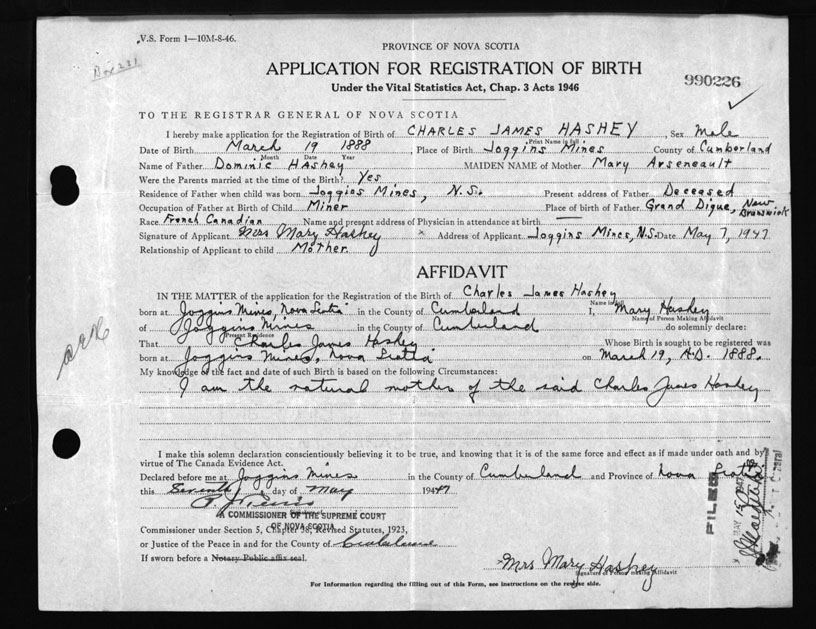 V.S. Form 1—10M-8-46.
Box 231
PROVINCE OF NOVA SCOTIA
APPLICATION FOR REGISTRATION OF BIRTH
990226
Under the Vital Statistics Act, Chap. 3 Acts 1946
TO THE REGISTRAR GENERAL OF NOVA SCOTIA
I hereby make application for the Registration of Birth of CHARLES JAMES HASHEY Sex Male
Print Name in full
Date of Birth March 19 1888, Place of Birth Joggins Mines County of Cumberland
Month Date Year
Name of Father Dominic Hashey MAIDEN NAME of Mother Mary Arseneault
Were the Parents married at the time of the Birth? Yes
Residence of Father when child was born Joggins Mines, N.S. Present address of Father Deceased
Occupation of Father at Birth of Child Miner Place of birth of Father Grand Digue, New Brunswick
Race French Canadian Name and present address of Physician in attendance at birth —
Signature of Applicant Mrs Mary Hashey x Address of Applicant Joggins Mines, N.S. Date May 7, 1947
Relationship of Applicant to child Mother.
AFFIDAVIT
IN THE MATTER of the application for the Registration of the Birth of Charles James Hashey
Name in full
born at Joggins Mines, Nova Scotia in the County of Cumberland I, Mary Hashey
Name of Person Making Affidavit
of Joggins Mines in the County of Cumberland do solemnly declare:
Present Residence
That Charles James Hashey Whose Birth is sought to be registered was
born at Joggins Mines, Nova Scotia on March 19, A.D. 1888.
My knowledge of the fact and date of such Birth is based on the following Circumstances:
I am the natural mother of the said Charles James Hashey
I make this solemn declaration conscientiously believing it to be true, and knowing that it is of the same force and effect as if made under oath and by
virtue of The Canada Evidence Act.
Declared before me at Joggins Mines in the County of Cumberland and Province of Nova Scotia
this Seventh day of May 1947
A COMMISSIONER OF THE SUPREME COURT
OF NOVA SCOTIA
Commissioner under Section 5, Chapter 38, Revised Statutes, 1923,
or Justice of the Peace in and for the County of
If sworn before a Notary Public affix seal.
x Mrs Mary Hashey
Signature of Person making Affidavit
For Information regarding the filling out of this Form, see instructions on the reverse side.
FILED
MAY 15 1947